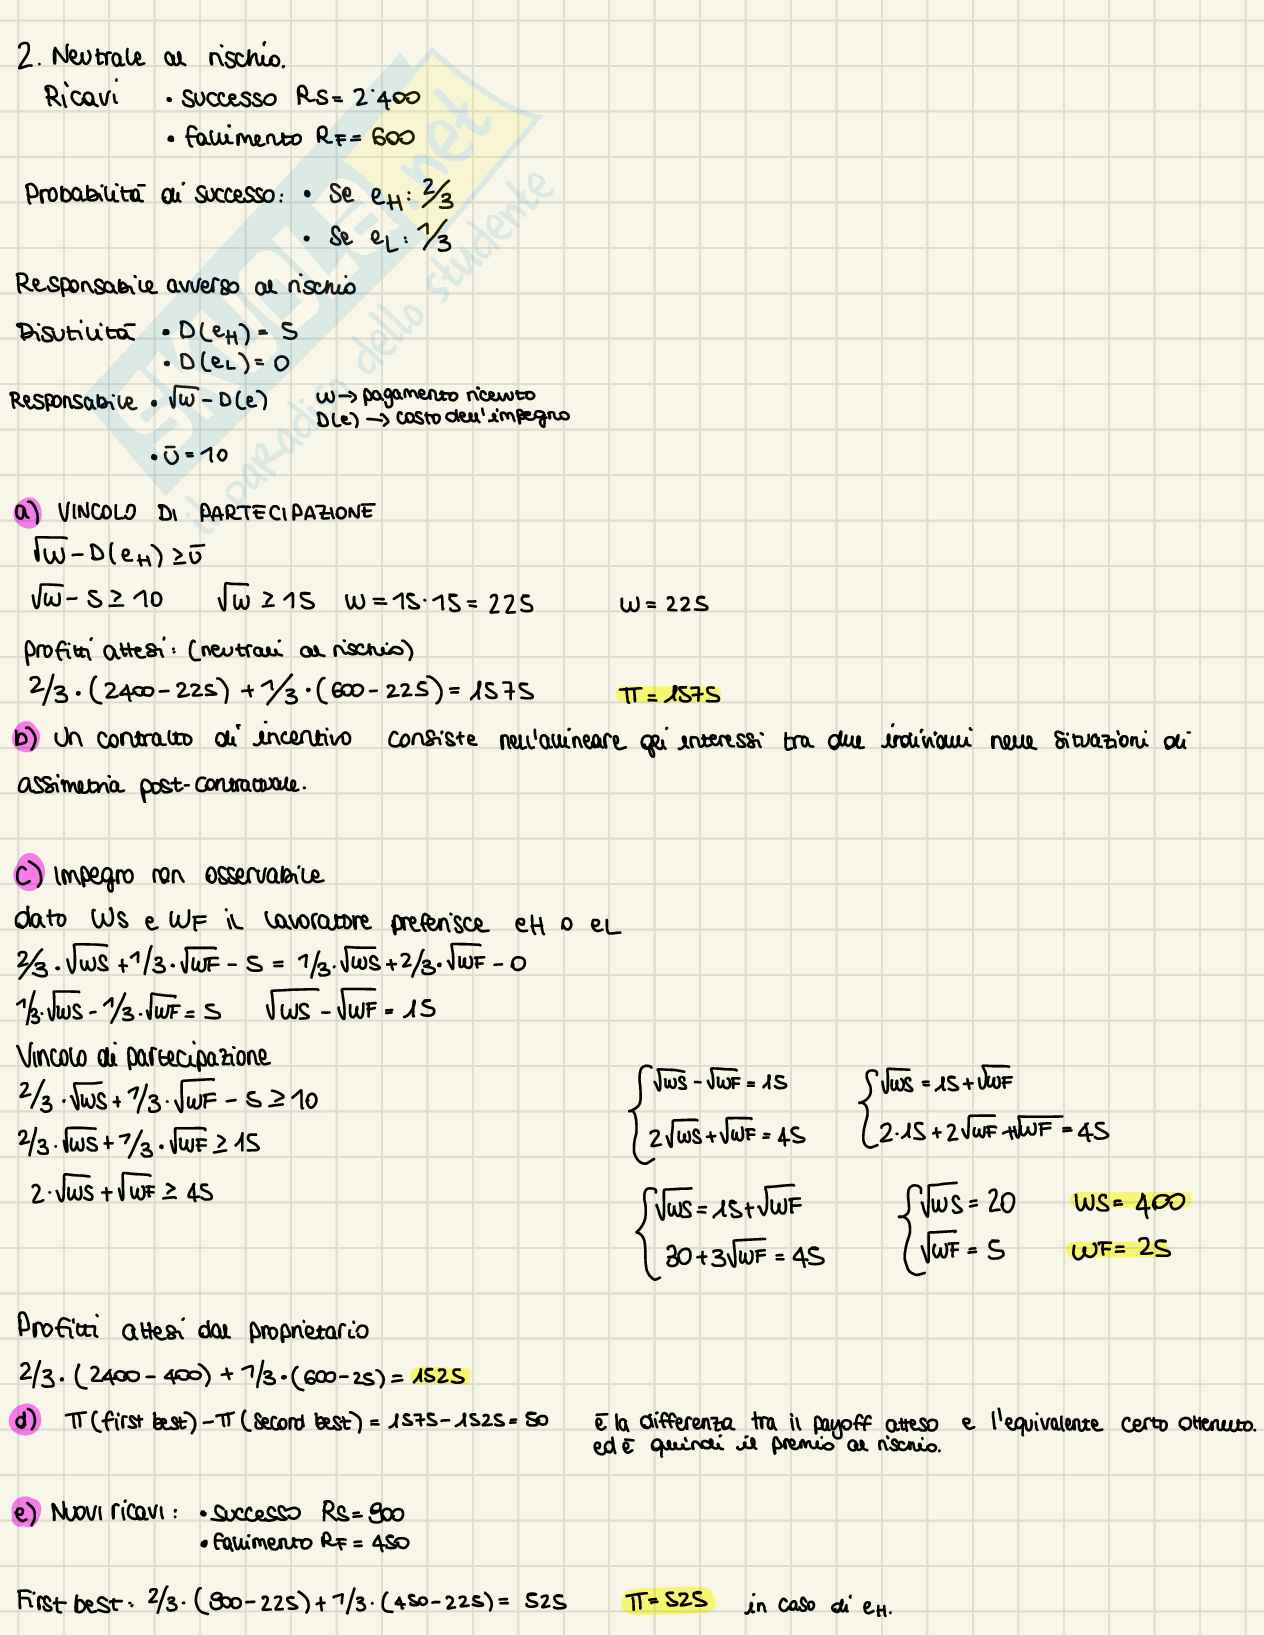 2. Neutrale al rischio.
Ricavi • successo RS = 2'400
• fallimento RF = 600
Probabilità di successo: • Se eH: 2/3
• Se eL: 1/3
Responsabile avverso al rischio
Disutilità • D(eH) = 5
• D(eL) = 0
Responsabile • √w - D(e) w → pagamento ricevuto
D(e) → costo dell'impegno
• Ū = 10
a) VINCOLO DI PARTECIPAZIONE
√w - D(eH) ≥ Ū
√w - 5 ≥ 10 √w ≥ 15 w = 15·15 = 225 w = 225
Profitti attesi: (neutrali al rischio)
2/3 · (2400 - 225) + 1/3 · (600 - 225) = 1575 π = 1575
b) Un contratto di incentivo consiste nell'allineare gli interessi tra due individui nelle situazioni di
assimetria post-contrattuale.
c) Impegno non osservabile
dato WS e WF il lavoratore preferisce eH o eL
2/3 · √WS + 1/3 · √WF - 5 = 1/3 · √WS + 2/3 · √WF - 0
1/3 · √WS - 1/3 · √WF = 5 √WS - √WF = 15
Vincolo di partecipazione
2/3 · √WS + 1/3 · √WF - 5 ≥ 10
2/3 · √WS + 1/3 · √WF ≥ 15
2 · √WS + √WF ≥ 45
{ √WS - √WF = 15 { √WS = 15 + √WF
2√WS + √WF = 45 2·15 + 2√WF + √WF = 45
{ √WS = 15 + √WF { √WS = 20 WS = 400
30 + 3√WF = 45 √WF = 5 WF = 25
Profitti attesi dal proprietario
2/3 · (2400 - 400) + 1/3 · (600 - 25) = 1525
d) π (first best) - π (second best) = 1575 - 1525 = 50 è la differenza tra il payoff atteso e l'equivalente certo ottenuto.
ed è quindi il premio al rischio.
e) Nuovi ricavi: • successo RS = 900
• fallimento RF = 450
First best: 2/3 · (900 - 225) + 1/3 · (450 - 225) = 525 π = 525 in caso di eH.
SKUOLA.net
il paradiso dello studente